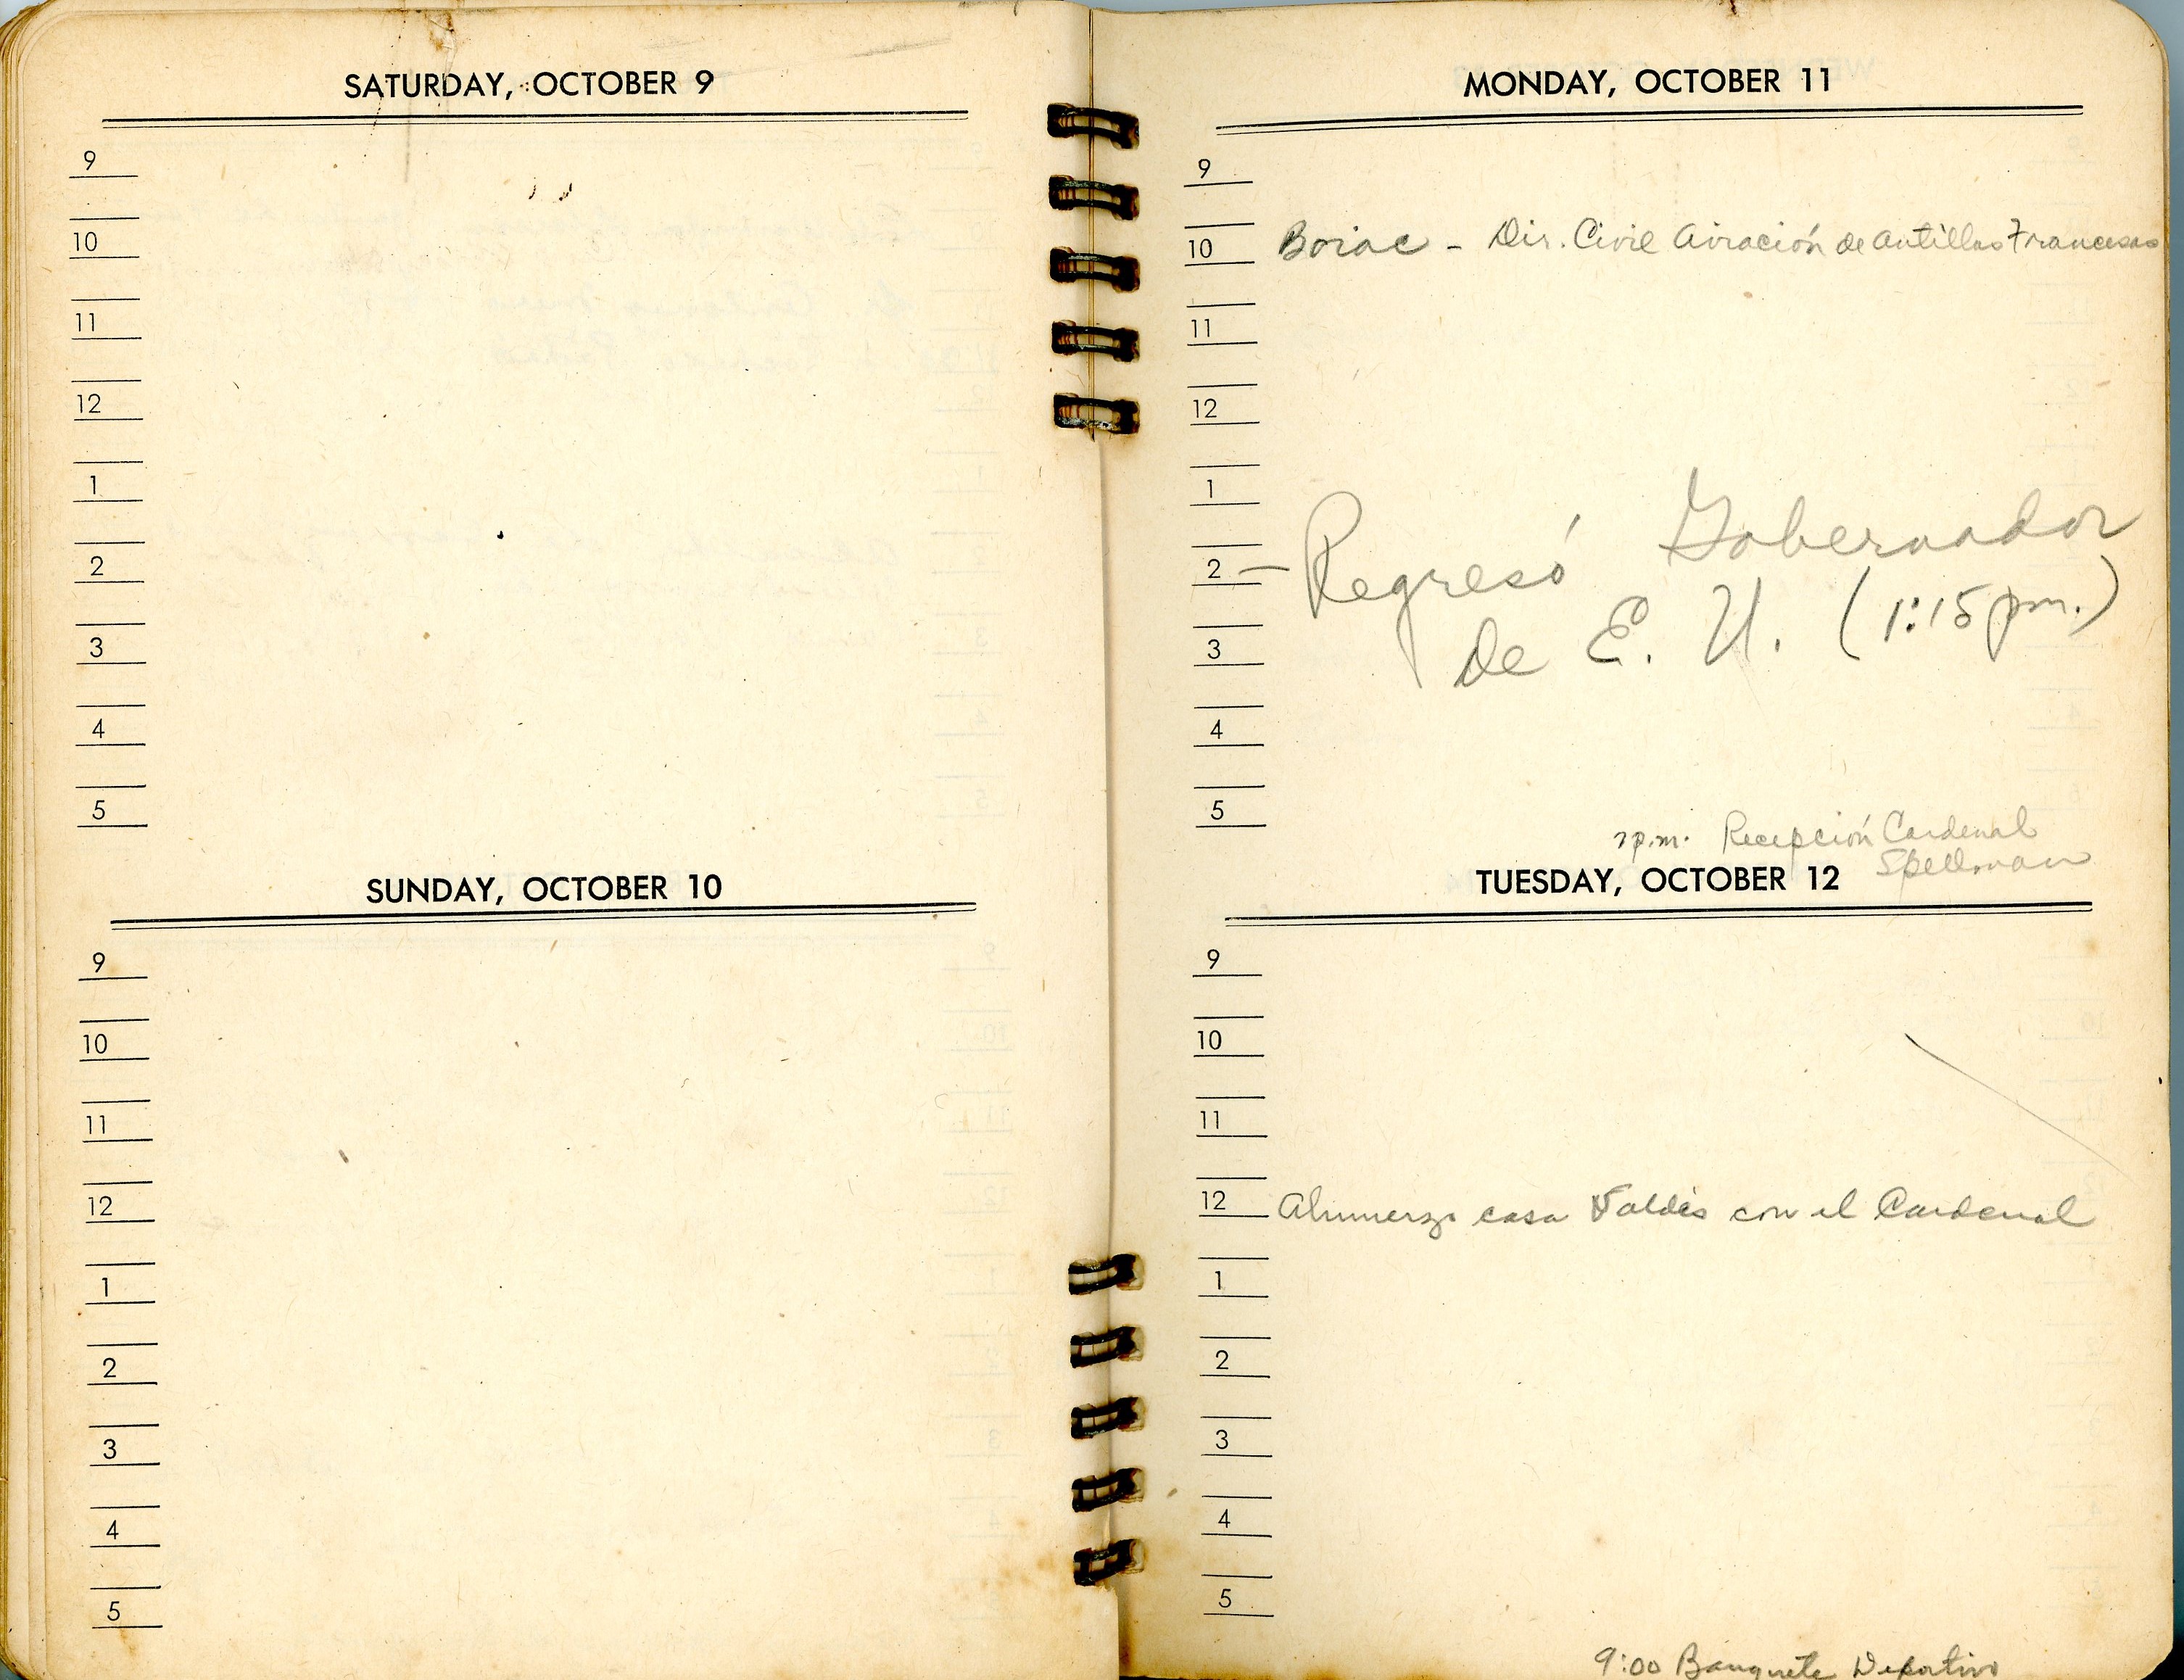 SATURDAY, OCTOBER 9
9
10
11
12
1
2
3
4
5
SUNDAY, OCTOBER 10
9
10
11
12
1
2
3
4
5
MONDAY, OCTOBER 11
9
10 Boriac - Dir. Civil Aviación de Antillas Francesas
11
12
1
2 - Regresó Gobernador
de E. U. (1:15 p.m.)
3
4
5
7 p.m. Recepción Cardenal
Spellman
TUESDAY, OCTOBER 12
9
10
11
12 Almuerzo casa Valdés con el Cardenal
1
2
3
4
5
9:00 Banquete Deportivo